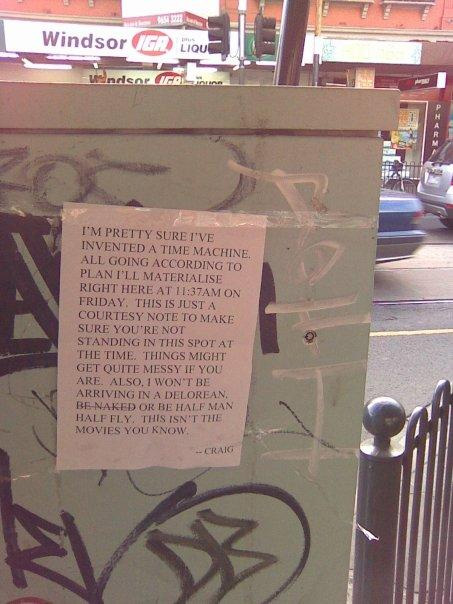 9654 3222
Windsor IGA plus LIQU
Windsor IGA plus LIQUOR
PHARMA
I'M PRETTY SURE I'VE
INVENTED A TIME MACHINE.
ALL GOING ACCORDING TO
PLAN I'LL MATERIALISE
RIGHT HERE AT 11:37AM ON
FRIDAY. THIS IS JUST A
COURTESY NOTE TO MAKE
SURE YOU'RE NOT
STANDING IN THIS SPOT AT
THE TIME. THINGS MIGHT
GET QUITE MESSY IF YOU
ARE. ALSO, I WON'T BE
ARRIVING IN A DELOREAN,
BE NAKED OR BE HALF MAN
HALF FLY. THIS ISN'T THE
MOVIES YOU KNOW.
-- CRAIG